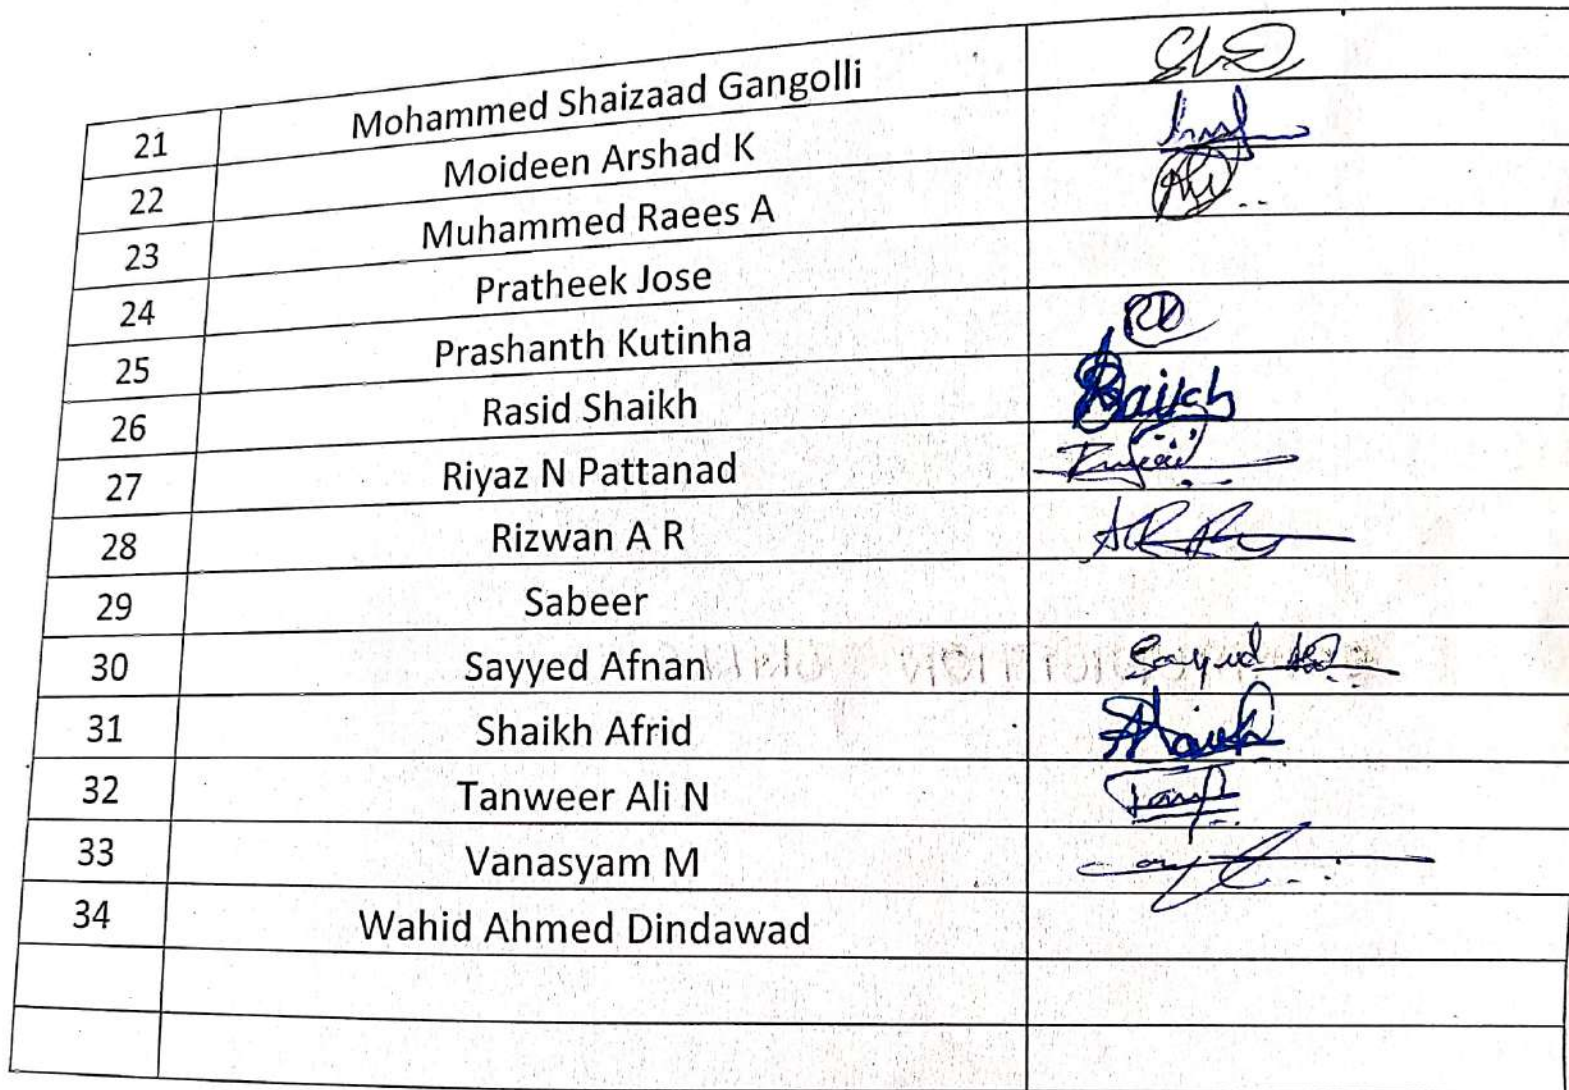 21 Mohammed Shaizaad Gangolli
22 Moideen Arshad K
23 Muhammed Raees A
24 Pratheek Jose
25 Prashanth Kutinha
26 Rasid Shaikh Shaikh
27 Riyaz N Pattanad
28 Rizwan A R
29 Sabeer
30 Sayyed Afnan Sayyed
31 Shaikh Afrid Shaikh
32 Tanweer Ali N
33 Vanasyam M
34 Wahid Ahmed Dindawad